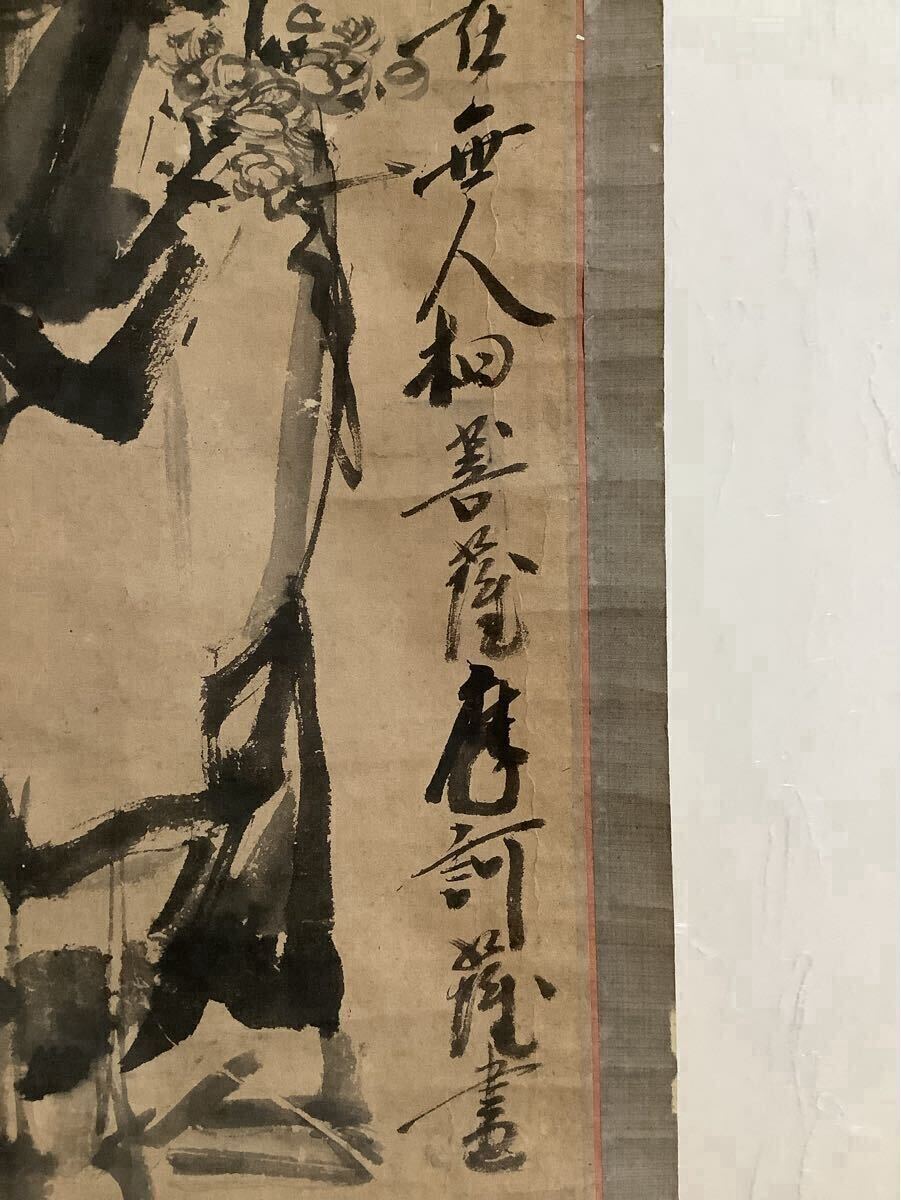 在無人相菩薩摩訶薩畫